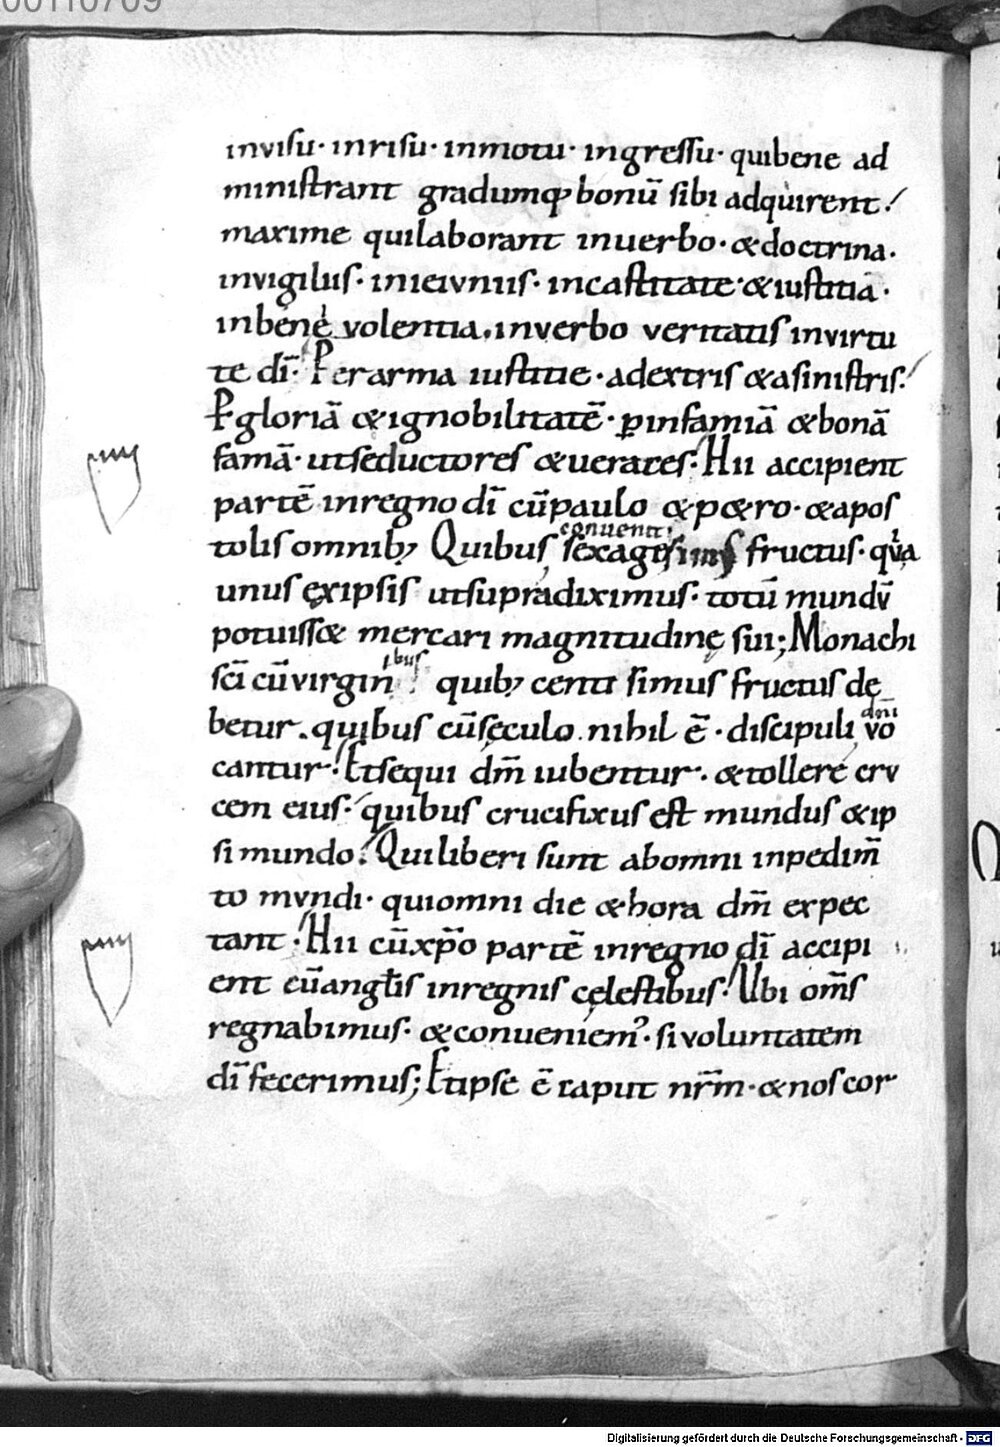 00110709
invisu· inrisu· inmotu· ingressu· quibene ad
ministrant gradumq; bonū sibi adquirent·
maxime quilaborant inuerbo· &doctrina·
invigiliis· inieivniis· incastitate· &iustitia·
inbene volentia, inverbo veritatis invirtu
te dī· Perarma iustitie· adextris &asinistris·
Pgloriā &ignobilitatē· ꝑinfamiā &bonā
famā· utseductores &ueraces· Hii accipient
partē inregno dī cūpaulo &p&ro· &apos
tolis omnib; Quibus conuenit sexagesimus fructus· quia
unus ęxipsis utsupradiximus· totū mundū
potuiss& mercari magnitudinę sui; Monachi
scī cūvirginibus quib; centisimus fructus de
betur· quibus cūsęculo nihil ē· discipuli dnī vo
cantur· Etsequi dm̄ iubentur· &tollere crv
cem eius· quibus crucifixus est mundus &ip
si mundo· Quiliberi sunt abomni inpedim̄
to mvndi· quiomni die &hora dm̄ expec
tant· Hii cūxp̄o partē inregno dī accipi
ent eūangl̄is inregnis cęlestibus· Ubi om̄s
regnabimus· &conueniem᾽· sivoluntatem
dī fecerimus; Etipse ē caput nr̄m· &nos cor
Digitalisierung gefördert durch die Deutsche Forschungsgemeinschaft - DFG